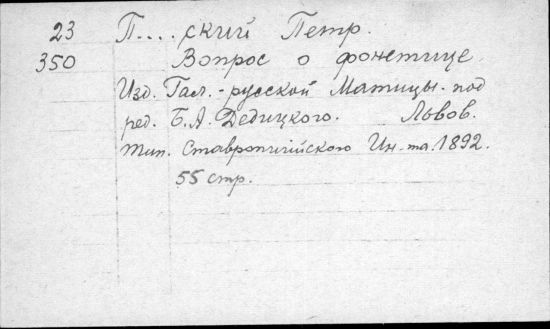 23 П....ский Петр.
350 Вопрос о фонетице.
Изд. Гал.-русской Матицы. под
ред. Б. А. Дедицкого. Львов.
тип. Ставропигійского Ин-та. 1892.
55 стр.